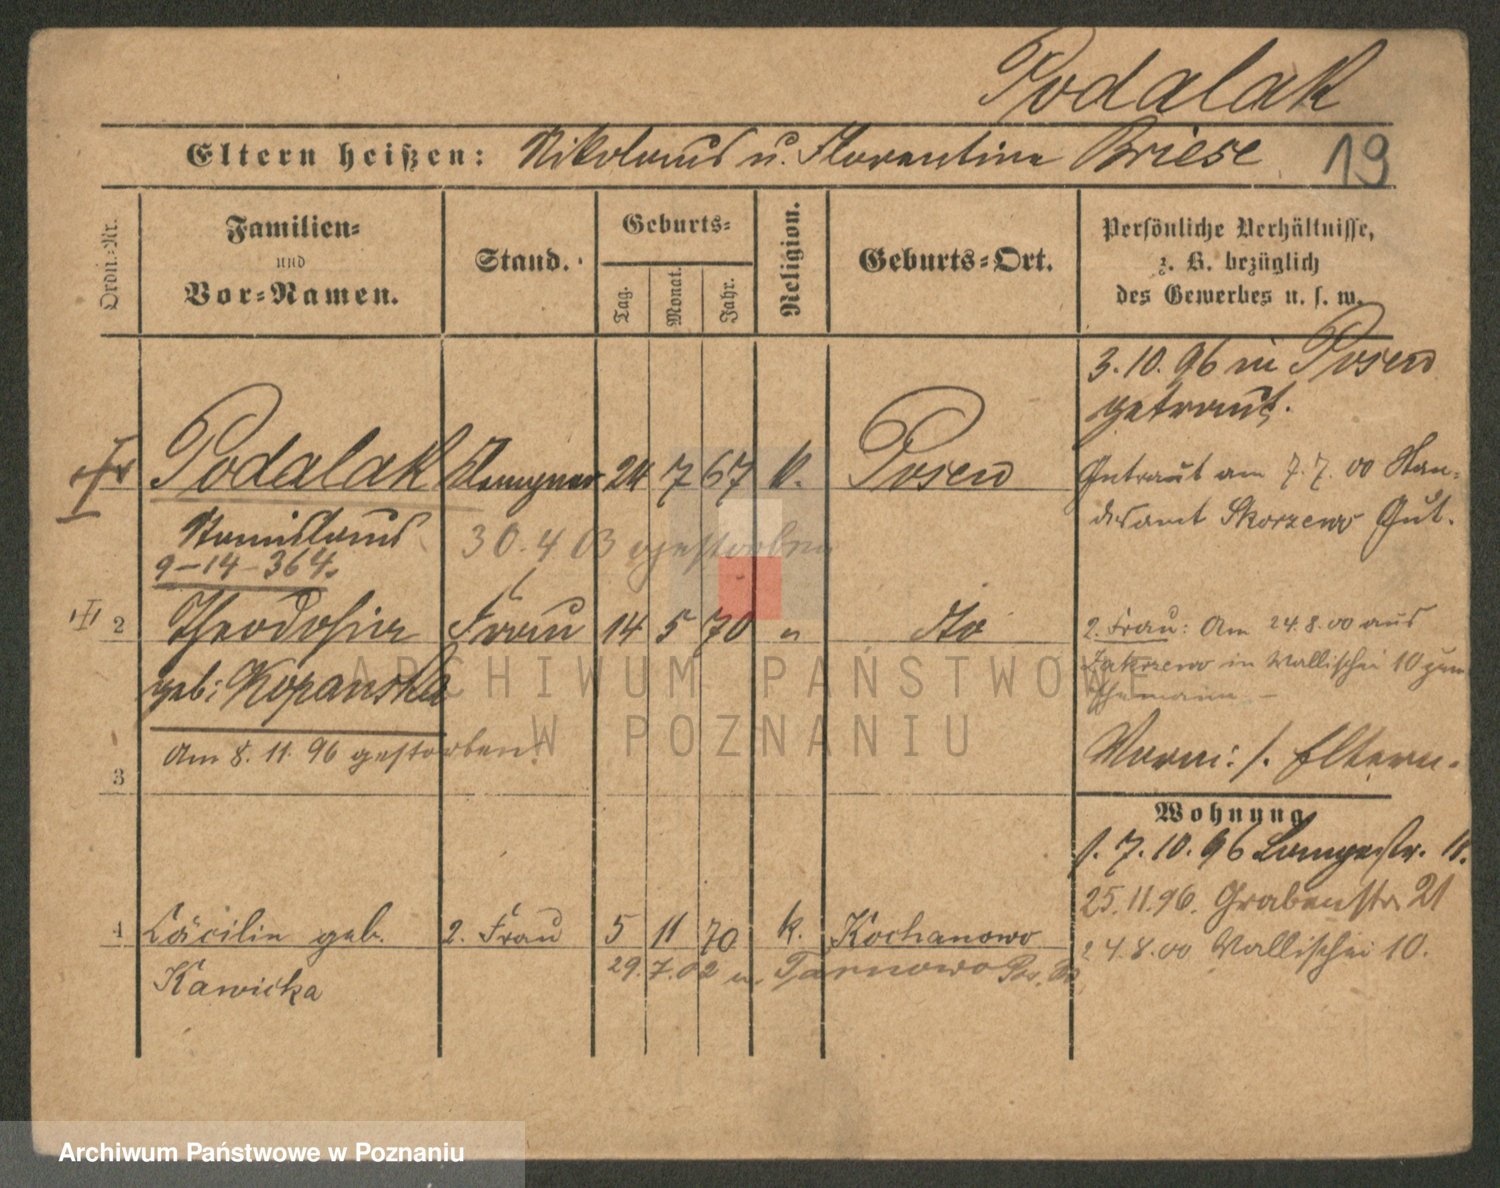 Podalak
Eltern heißen: Nikolaus u. Florentine Briese 19
Ordn.-Nr.
Familien-
und
Vor-Namen.
Stand.
Geburts-
Tag.
Monat.
Jahr.
Religion.
Geburts-Ort.
Persönliche Verhältnisse,
z. B. bezüglich
des Gewerbes u. s. w.
3.10.96 in Posen
getraut.
Podalak Klempner 24 7 67 k. Posen
Getraut am 7.7.00 Stan-
desamt Skorzewo Gut.
Stanislaus
30.4.03 gestorben
9-14-364.
2 Theodosia Frau 14 5 70 " dto
2. Frau: Am 24.8.00 aus
in Wallischei 10 zum
Ehemann.
geb: Kopanska
Am 8.11.96 gestorben
3
Vorm: s. Eltern.
Wohnung
s. 7.10.96 Langestr. 11.
25.11.96. Grabenstr 21
4 Cäcilie geb. 2. Frau 5 11 70 k. Kochanowo
24.8.00 Wallischei 10.
29.7.02 n. Tarnowo Pos.
Kawicka
ARCHIWUM PAŃSTWOWE
W POZNANIU
Archiwum Państwowe w Poznaniu